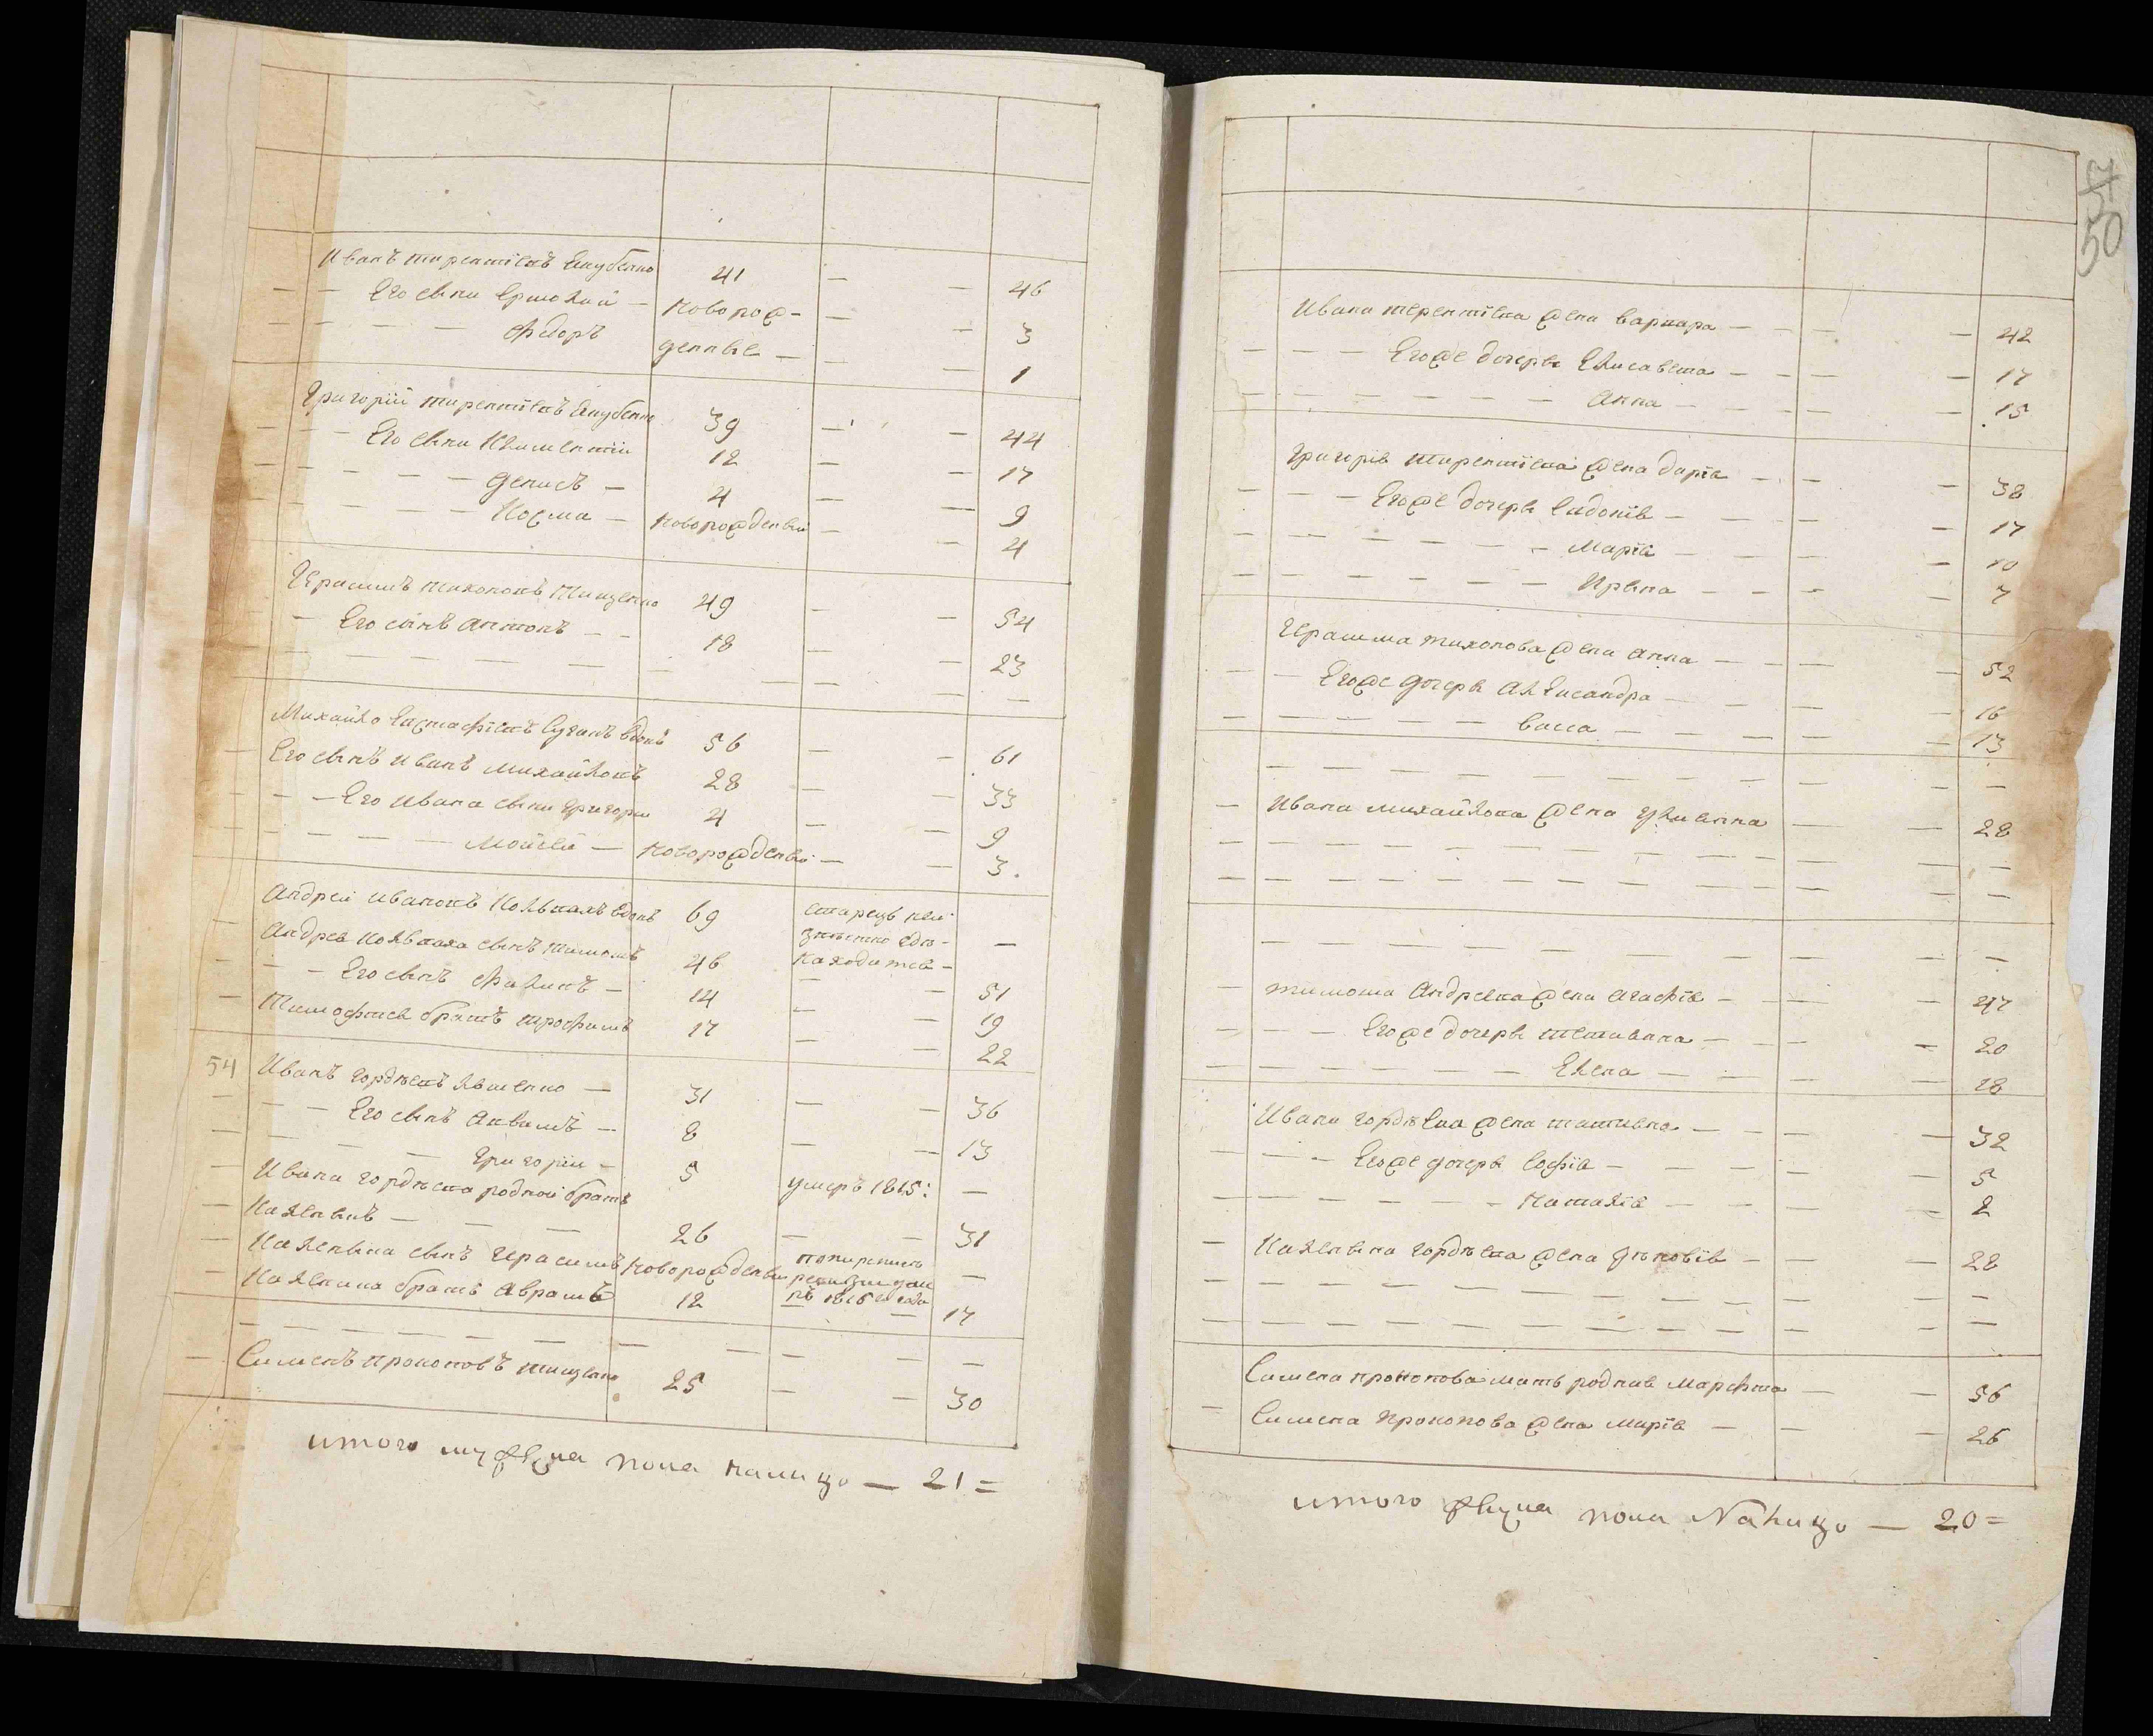 Иванъ тирентіевъ Якубенко 41 — — 46
— — Его сыни Ермолай — Новорож- — — 3
— — — — Федоръ денные — — — 1
Григорій тирентіевъ Якубенко 39 — — 44
— — Его сыни Климентіи 12 — — 17
— — — — Денисъ — 4 — — 9
— — — — Косма — новорожденъи — — 4
Герасимъ тихоновъ Тищенко 49 — — 54
— Его сынъ антонъ — — 18 — — 23
Михайло Евстафіевъ Сугакъ вдовъ 56 — — 61
— Его сынъ иванъ михайловъ 28 — — 33
— — Его ивана сыни григори 4 — — 9
— — — — Моисей — новорожденъи — — 3.
Андрей ивановъ Ковькахъ вдовъ 69 старецъ неи-
— звѣстно где —
находится —
Андрея сынъ 46 — — 51
— — Его сынъ Филипъ — 14 — — 19
— Тимофтея братъ трофимъ 17 — — 22
54 Иванъ гордѣевъ — 31 — — 36
— — Его сынъ Аквимъ — 8 — — 13
— — — — Григоріи — 5 умеръ 1815: —
— Ивана гордѣева родной братъ
— Каленикъ — — — 26 — — 31
— Каленика сынъ Герасимъ новорожденъи —
— Каленика братъ аврамъ 12 — — 17
— Сименъ прокоповъ тищенко 25 — — 30
итого мужеска пола налицо — 21 =
57
50
Ивана терентіева жена варвара — — — — 42
— — — Егоже дочери Елисавета — — — — 17
— — — — — — Анна — — — — 15
Григорія тирентіева жена дарія — — — 38
— — — Егоже дочери Евдокія — — — — 17
— — — — — — Марія — — — — 10
— — — — — — Ирина — — — — 7
Герасима тихонова жена анна — — — — 52
— — Егоже дочери александра — — — — 16
— — — — — — васса — — — — 13
— Ивана михайлова жена улианна — — 28
— тимоша Андреева жена агафія — — — 47
— — — Егоже дочери тетияна — — — — 20
— — — — — — Елена — — — — 18
Ивана гордѣева жена татияна — — — — 32
— — — Егоже дочери софія — — — — 5
— — — — — — Наталія — — — — 2
— Каленика гордѣева жена зѣновія — — — 28
Симена прокопова мать родная марфта — — 56
— Симена прокопова жена марія — — — 26
итого женска пола Налицо — 20 =